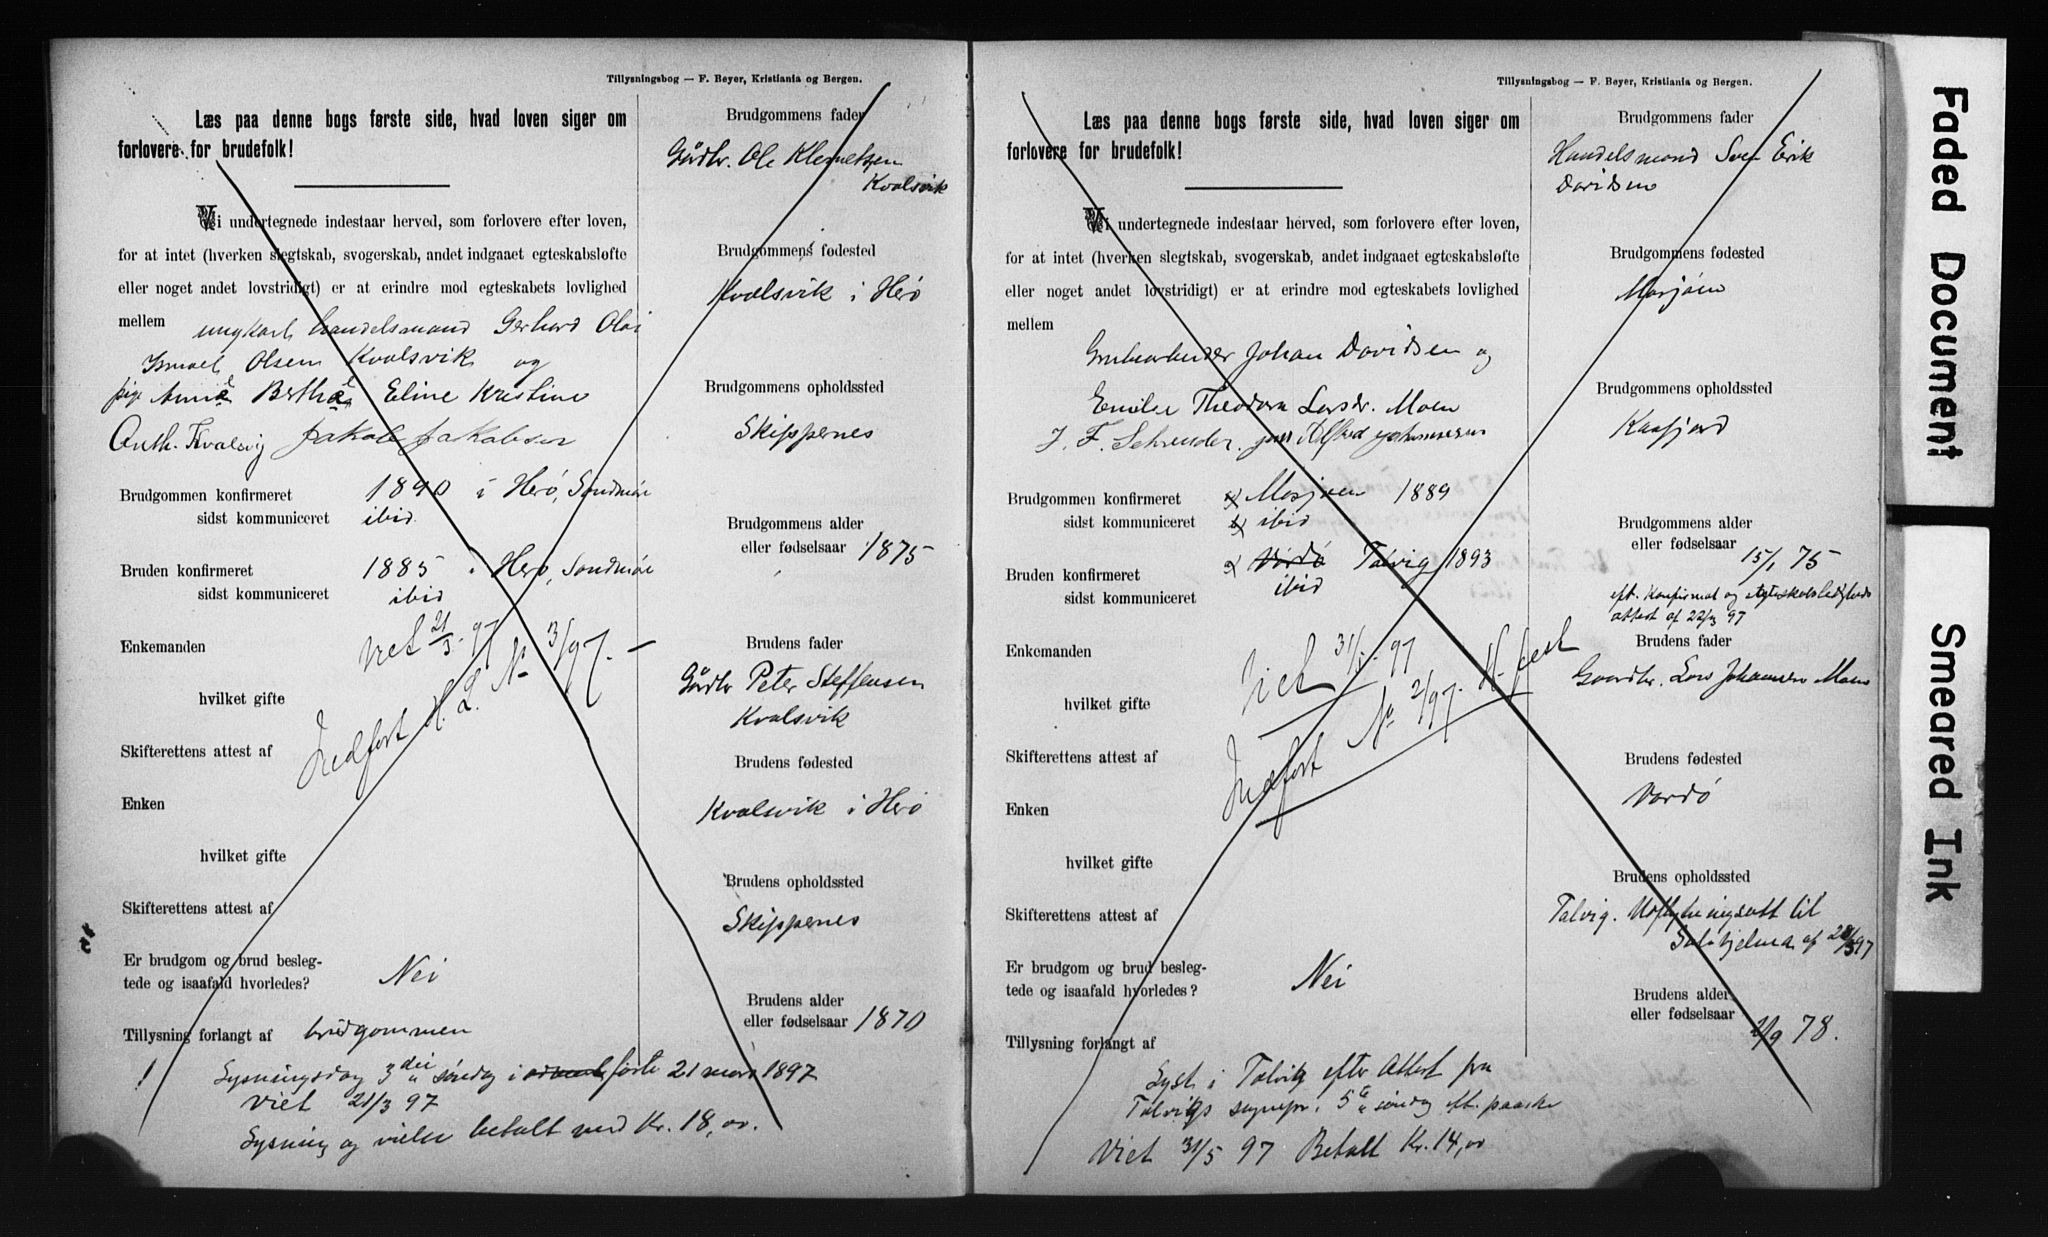 Tillysningsbog — F. Beyer, Kristiania og Bergen.
Læs paa denne bogs første side, hvad loven siger om
forlovere for brudefolk!
Vi undertegnede indestaar herved, som forlovere efter loven,
for at intet (hverken slegtskab, svogerskab, andet indgaaet egteskabsløfte
eller noget andet lovstridigt) er at erindre mod egteskabets lovlighed
mellem ungkarl handelsmand Gerhard Olai
Ismael Olsen Kvalsvik og
pige Berthe Eline Kristine
Anth. Kvalsvig Jakob Jakobsen
Brudgommen konfirmeret 1890 i Herø, Søndmøre
sidst kommuniceret ibid.
Bruden konfirmeret 1885 i Herø, Søndmøre
sidst kommuniceret ibid
Enkemanden
viet 21/3-97
hvilket gifte
Indført H. L. No 3/97.—
Skifterettens attest af
Enken
hvilket gifte
Skifterettens attest af
Er brudgom og brud beslegtede
tede og isaafald hvorledes? Nei
Tillysning forlangt af brudgommen
Lysningsdag 3die søndag i faste 21 mars 1897
Viet 21/3 97
Lysning og vielse betalt med Kr. 18,00.
Brudgommens fader
Gårdbr. Ole Klemetsen
Kvalsvik
Brudgommens fødested
Kvalsvik i Herø
Brudgommens opholdssted
Skippernes
Brudgommens alder
eller fødselsaar 1875
Brudens fader
Gårdbr Peter Steffensen
Kvalsvik
Brudens fødested
Kvalsvik i Herø
Brudens opholdssted
Skippernes
Brudens alder
eller fødselsaar 1870
Tillysningsbog — F. Beyer, Kristiania og Bergen.
Læs paa denne bogs første side, hvad loven siger om
forlovere for brudefolk!
Vi undertegnede indestaar herved, som forlovere efter loven,
for at intet (hverken slegtskab, svogerskab, andet indgaaet egteskabsløfte
eller noget andet lovstridigt) er at erindre mod egteskabets lovlighed
mellem
Grubearbeider Johan Davidsen og
Emilie Theodora Larsdr. Moen
J. F. Schreuder. Alfred Johannesen
Brudgommen konfirmeret Mosjøen 1889
sidst kommuniceret ibid
Bruden konfirmeret Vardø Talvig 1893
sidst kommuniceret ibid
Enkemanden
Viet 31/5-97
hvilket gifte
Indført No 2/97.
Skifterettens attest af
Enken
hvilket gifte
Skifterettens attest af
Er brudgom og brud besleg-
tede og isaafald hvorledes? Nei
Tillysning forlangt af
Lyst i Talvig efter Attest fra
Talvigs sognepr. 5te søndag eft. paaske
Viet 31/5 97 Betalt Kr. 14,00
Brudgommens fader
Handelsmand Sven Erik
Davidsen
Brudgommens fødested
Mosjøen
Brudgommens opholdssted
Kaafjord
Brudgommens alder
eller fødselsaar
15/1 75
eft. Konfirmat og Ægteskabsledigheds
attest af 22/3 97
Brudens fader
Gaardbr. Lars Johannesen Moen
Brudens fødested
Vardø
Brudens opholdssted
Talvig. Udflytningsatt til
af 28/5 97
Brudens alder
eller fødselsaar
2/9 78.
Faded Document
Smeared Ink